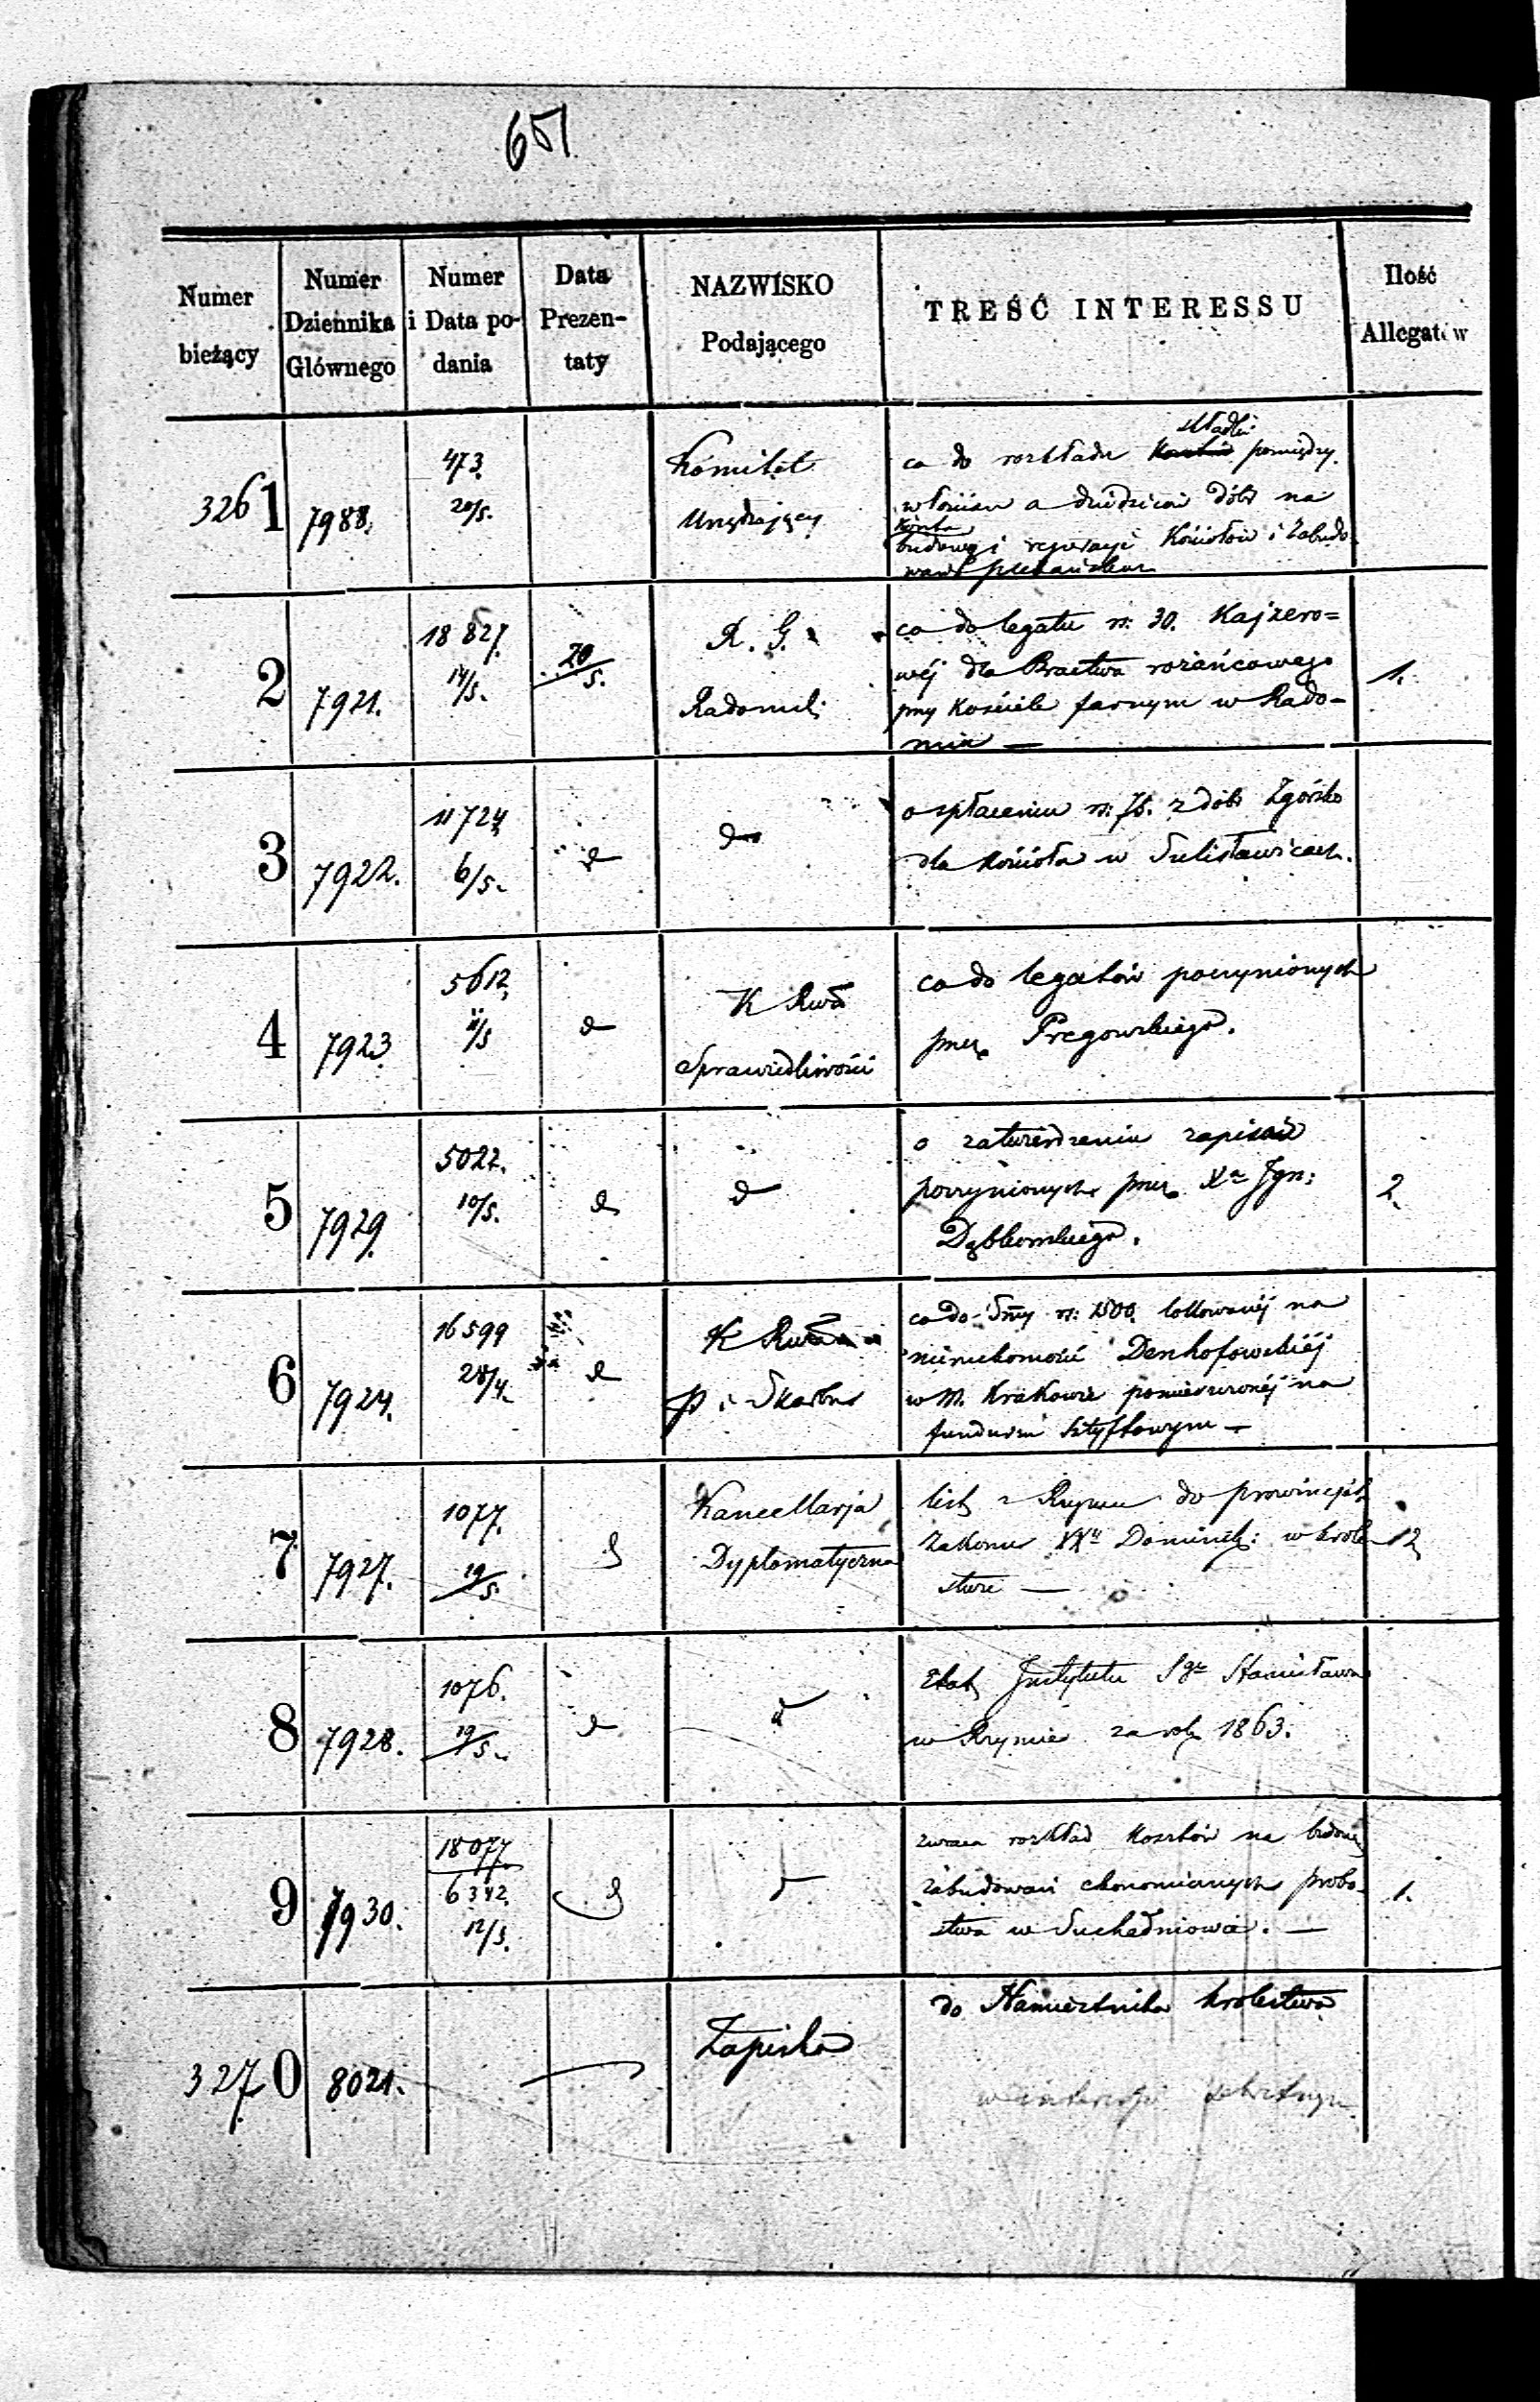 651
Numer bieżący
Numer Dziennika Głównego
Numer i Data podania
Data Prezentaty
NAZWISKO Podającego
TREŚĆ INTERESSU
Ilość Allegatów
3261
7988.
473.
20/5.
Komitet
Urządzający
co do rozkładu składki pomiędzy
włościan a dziedziców dóbr na
budowę i reperacje Kościołów i Zabudo-
wań plebańskich
2
7921.
18827.
14/5.
20/5.
R. G.
Radomsk:
co do legatu rs: 30. Kajzero=
wéj dla Bractwa rożańcowego
przy Kościele farnym w Rado-
miu —
3
7922.
11724
6/5.
d
do
o spłaceniu rs: 75. z dóbr Zgórsko
dla Kościoła w Sulisławicach.
4
7923
5612
11/5
d
K Rwa
Sprawiedliwości
co do legatów poczynionych
przez Pręgowskiego.
5
7929.
5022.
10/5.
d
d
o zatwierdzeniu zapisów
poczynionych przez Xa Ign:
Dąbkowskiego.
2
6
7924.
16599
28/4.
d
K Rwa
P. i Skarbu
co do Smy rs: 1500. lokowanéj na
nieruchomości Denhofowskiéj
w M. Krakowie pomieszczonéj na
funduszu sztyftowym —
7
7927.
1077.
19/5.
d
Kancellarja
Dyplomatyczna
list z Rzymu do prowincjała
Zakonu XXw Dominik: w Króle-
stwie —
12
8
7928.
1076.
19/5.
d
d
Etat Instytutu Sgo Stanisława
w Rzymie za rok 1863.
9
7930.
18077
6342
12/5.
d
d
zwraca rozkład Kosztów na budowę
zabudowań ekonomicznych probo-
stwa w Suchedniowie. —
1.
3270
8021.
Zapiska
do Namiestnika Królestwa